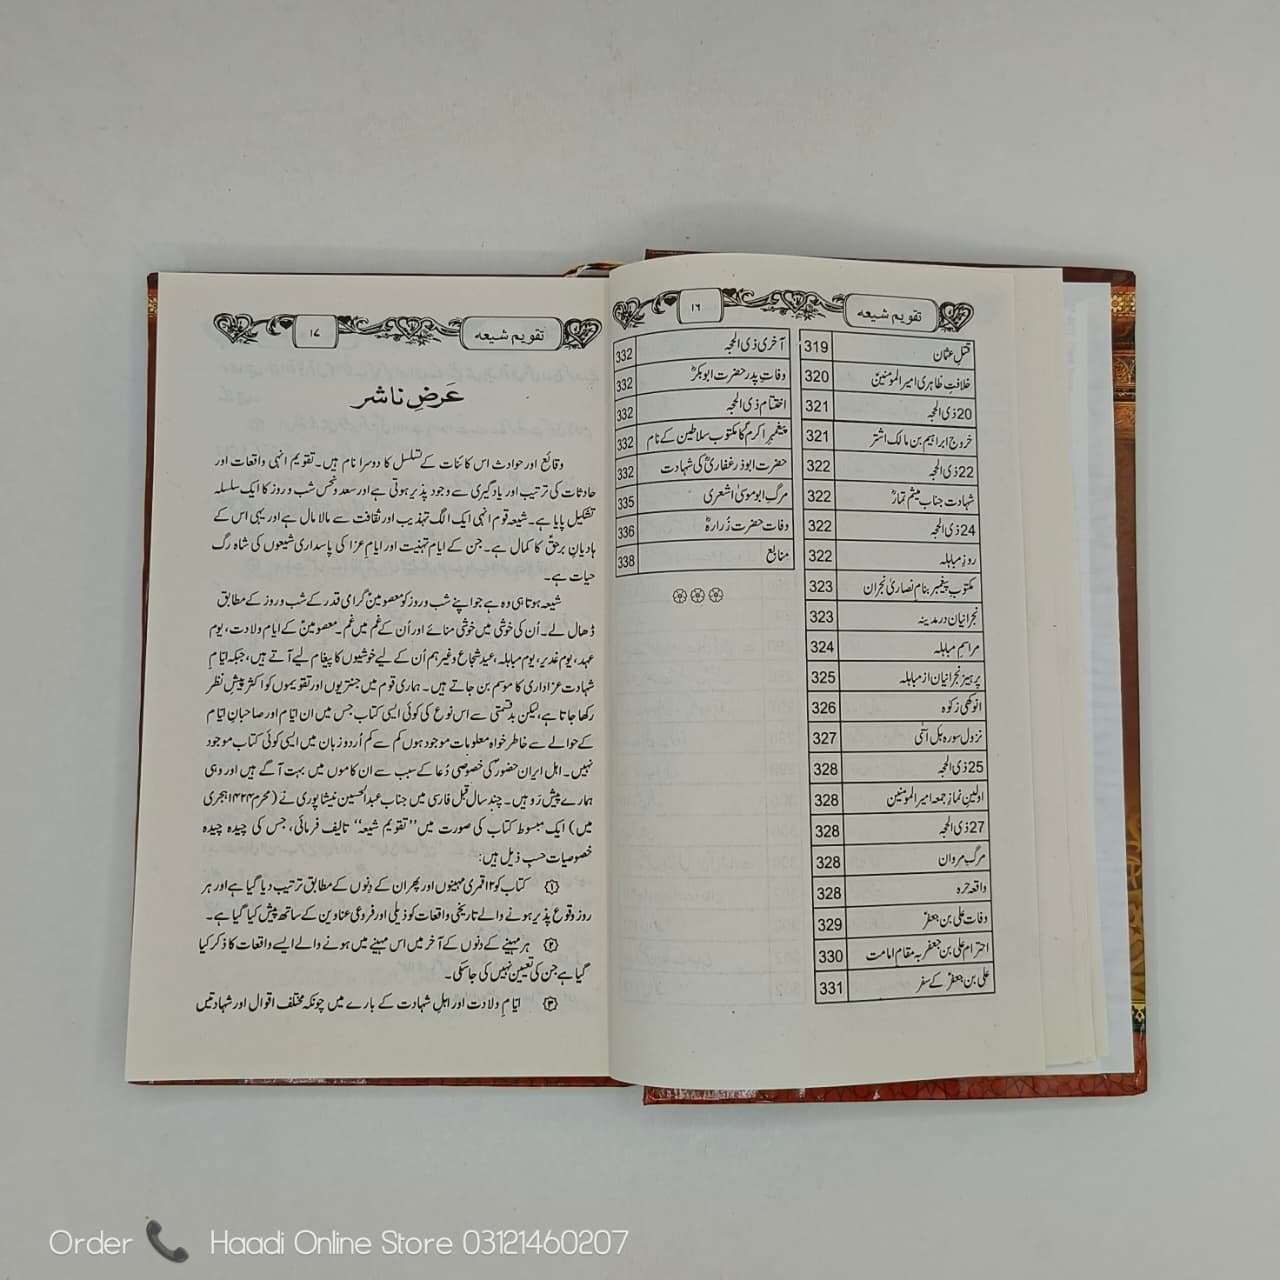 تقویم شیعہ
۱۶
قتلِ عثمان 319
خلافتِ ظاہری امیر المومنینؑ 320
20 ذی الحجہ 321
خروج ابراہیم بن مالک اشتر 321
22 ذی الحجہ 322
شہادت جناب میثم تمارؓ 322
24 ذی الحجہ 322
روزِ مباہلہ 322
مکتوبِ پیغمبر بنام نصاریٰ نجران 323
نجرانیان در مدینہ 323
مراسمِ مباہلہ 324
پرہیز نجرانیان از مباہلہ 325
انوکھی زکوٰۃ 326
نزول سورہ ہل اتیٰ 327
25 ذی الحجہ 328
اولین نمازِ جمعہ امیر المومنین 328
27 ذی الحجہ 328
مرگِ مروان 328
واقعہ حرہ 328
وفات علی بن جعفرؑ 329
احترام علی بن جعفر بہ مقامِ امامت 330
علی بن جعفرؑ کے سفر 331
آخری ذی الحجہ 332
وفاتِ پدر حضرت ابوبکرؓ 332
اختتام ذی الحجہ 332
پیغمبرِ اکرمؐ کا مکتوب سلاطین کے نام 332
حضرت ابوذر غفاریؓ کی شہادت 332
مرگِ ابو موسیٰ اشعری 335
وفات حضرت زُرارہؓ 336
منابع 338
تقویم شیعہ
۱۷
عَرضِ ناشر
وقائع اور حوادث اس کائنات کے تسلسل کا دوسرا نام ہیں۔ تقویم انہی واقعات اور
حادثات کی ترتیب اور یادگیری سے وجود پذیر ہوتی ہے اور سعد و نحس شب و روز کا ایک سلسلہ
تشکیل پایا ہے۔ شیعہ قوم انہی ایک الگ تہذیب اور ثقافت سے مالا مال ہے اور یہی اس کے
ہادیانِ برحقؑ کا کمال ہے۔ جن کے ایام تہنیت اور ایامِ عزا کی پاسداری شیعوں کی شاہ رگ
حیات ہے۔
شیعہ ہوتا ہی وہ ہے جو اپنے شب و روز کو معصومینؑ گرامی قدر کے شب و روز کے مطابق
ڈھال لے۔ اُن کی خوشی میں خوشی منائے اور اُن کے غم میں غم۔ معصومینؑ کے ایام ولادت، یوم
عہد، یوم غدیر، یوم مباہلہ، عیدِ شجاع وغیرہم اُن کے لیے خوشیوں کا پیغام لیے آتے ہیں، جبکہ ایّامِ
شہادت عزاداری کا موسم بن جاتے ہیں۔ ہماری قوم میں جنتریوں اور تقویموں کو اکثر پیشِ نظر
رکھا جاتا ہے، لیکن بدقسمتی سے اس نوع کی کوئی ایسی کتاب جس میں ان ایّام اور صاحبانِ ایّام
کے حوالے سے خاطر خواہ معلومات موجود ہوں کم سے کم اُردو زبان میں ایسی کوئی کتاب موجود
نہیں۔ اہل ایران حضورؐ کی خصوصی دُعا کے سبب سے ان کاموں میں بہت آگے ہیں اور وہی
ہمارے پیش رَو ہیں۔ چند سال قبل فارسی میں جناب عبدالحسین نیشاپوری نے (محرم ۱۴۲۴ ہجری
میں) ایک مبسوط کتاب کی صورت میں ''تقویم شیعہ'' تالیف فرمائی، جس کی چیدہ چیدہ
خصوصیات حسبِ ذیل ہیں:
① کتاب کو ۱۲ قمری مہینوں اور پھر ان کے دنوں کے مطابق ترتیب دیا گیا ہے اور ہر
روز وقوع پذیر ہونے والے تاریخی واقعات کو ذیلی اور فروعی عناوین کے ساتھ پیش کیا گیا ہے۔
② ہر مہینے کے دنوں کے آخر میں اس مہینے میں ہونے والے ایسے واقعات کا ذکر کیا
گیا ہے جن کی تعیین نہیں کی جا سکی۔
③ ایّامِ ولادت اور اہلِ شہادت کے بارے میں چونکہ مختلف اقوال اور شہادتیں
Order Haadi Online Store 03121460207